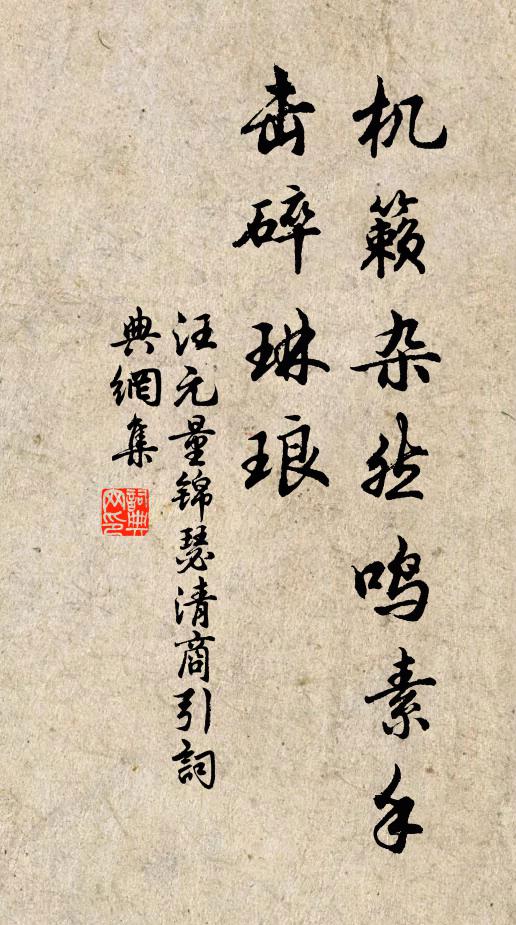 机籁杂然鸣素手
击碎琳琅
汪元量锦瑟清商引词
典網集
詞典网印